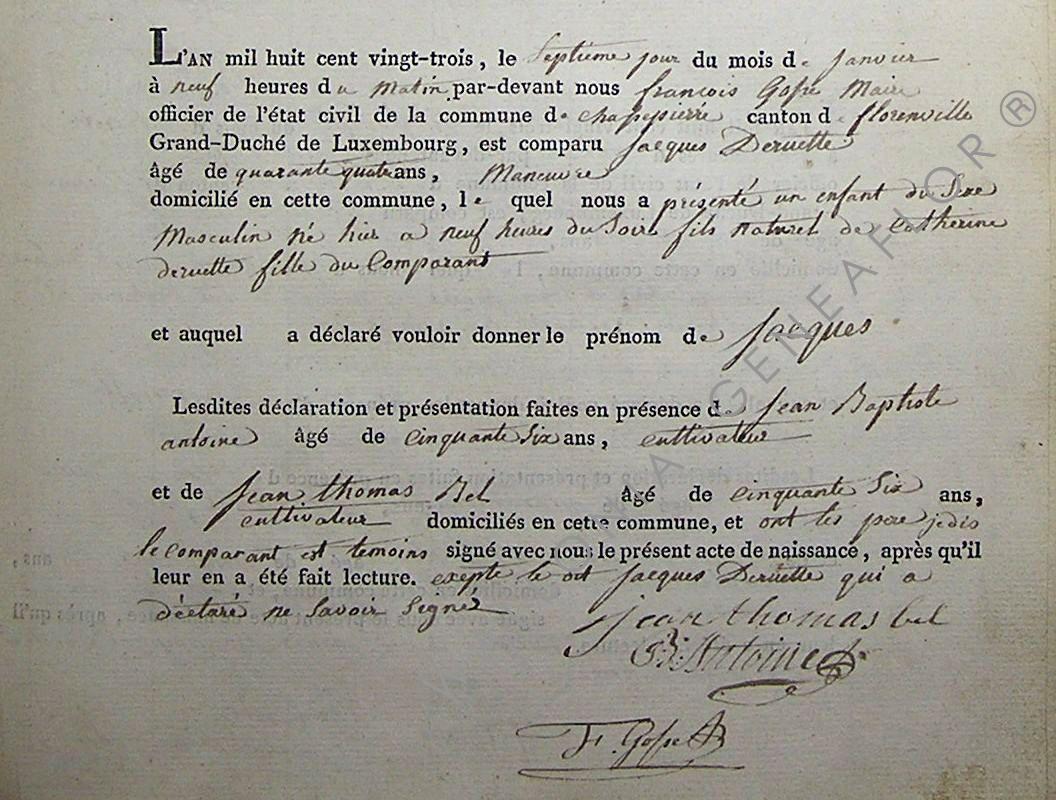 L'AN mil huit cent vingt-trois, le Septieme jour du mois de janvier
à neuf heures du Matin par-devant nous françois Gofse Maire
officier de l'état civil de la commune de chafsepierre canton de florenville
Grand-Duché de Luxembourg, est comparu Jacques Deruette
âgé de quarante quatre ans, Maneuvre
domicilié en cette commune, le quel nous a présenté un enfant du Sexe
Masculin né hier a neuf heures du Soir fils naturel de Catherine
deruette fille du Comparant
et auquel a déclaré vouloir donner le prénom de Jacques
Lesdites déclaration et présentation faites en présence de Jean Baptiste
antoine âgé de cinquante Six ans, cultivateur
et de Jean thomas Bel âgé de cinquante Six ans,
cultivateur domiciliés en cette commune, et ont les
le comparant est temoins signé avec nous le présent acte de naissance, après qu'il
leur en a été fait lecture. exepte le dit Jacques Deruette qui a
déclaré ne Savoir Signer
jean thomas bel
JB: Antoine
F. Gofse
GENEAFOR ®